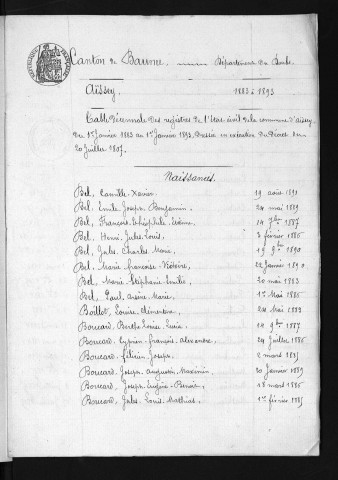 Canton de Baume. Département du Doubs.
Aïssey 1883 à 1893
Table Décennale des registres de l'état civil de la commune d'aïssey
du 1er Janvier 1883 au 1er Janvier 1893. Dressée en exécution du Décret du
20 Juillet 1807.
Naissances.
Bel, Camille Xavier 19 août 1891
Bel, Emile Joseph Benjamin 24 mai 1889
Bel, François Théophile 14 7bre 1887
Bel, Henri Jules Louis, 3 février 1886
Bel, Jules Charles Marie, 19 9bre 1890
Bel, Marie françoise Victoire, 22 Janvier 1890
Bel, Marie Stéphanie Emilie, 20 mai 1883
Bel, Paul Marie, 1er Mai 1886
Boillot, Louise Clémentine, 24 Mai 1888
Boucard, Berthe Louise Lucie, 14 9bre 1887
Boucard, Cyprien François Alexandre, 24 Juillet 1886
Boucard, Félicien Joseph, 2 mars 1885
Boucard, Joseph Augustin Maximin, 20 Janvier 1889
Boucard, Joseph Eugène Benoit, 18 mars 1886
Boucard, Jules Louis Mathias, 1er février 1885